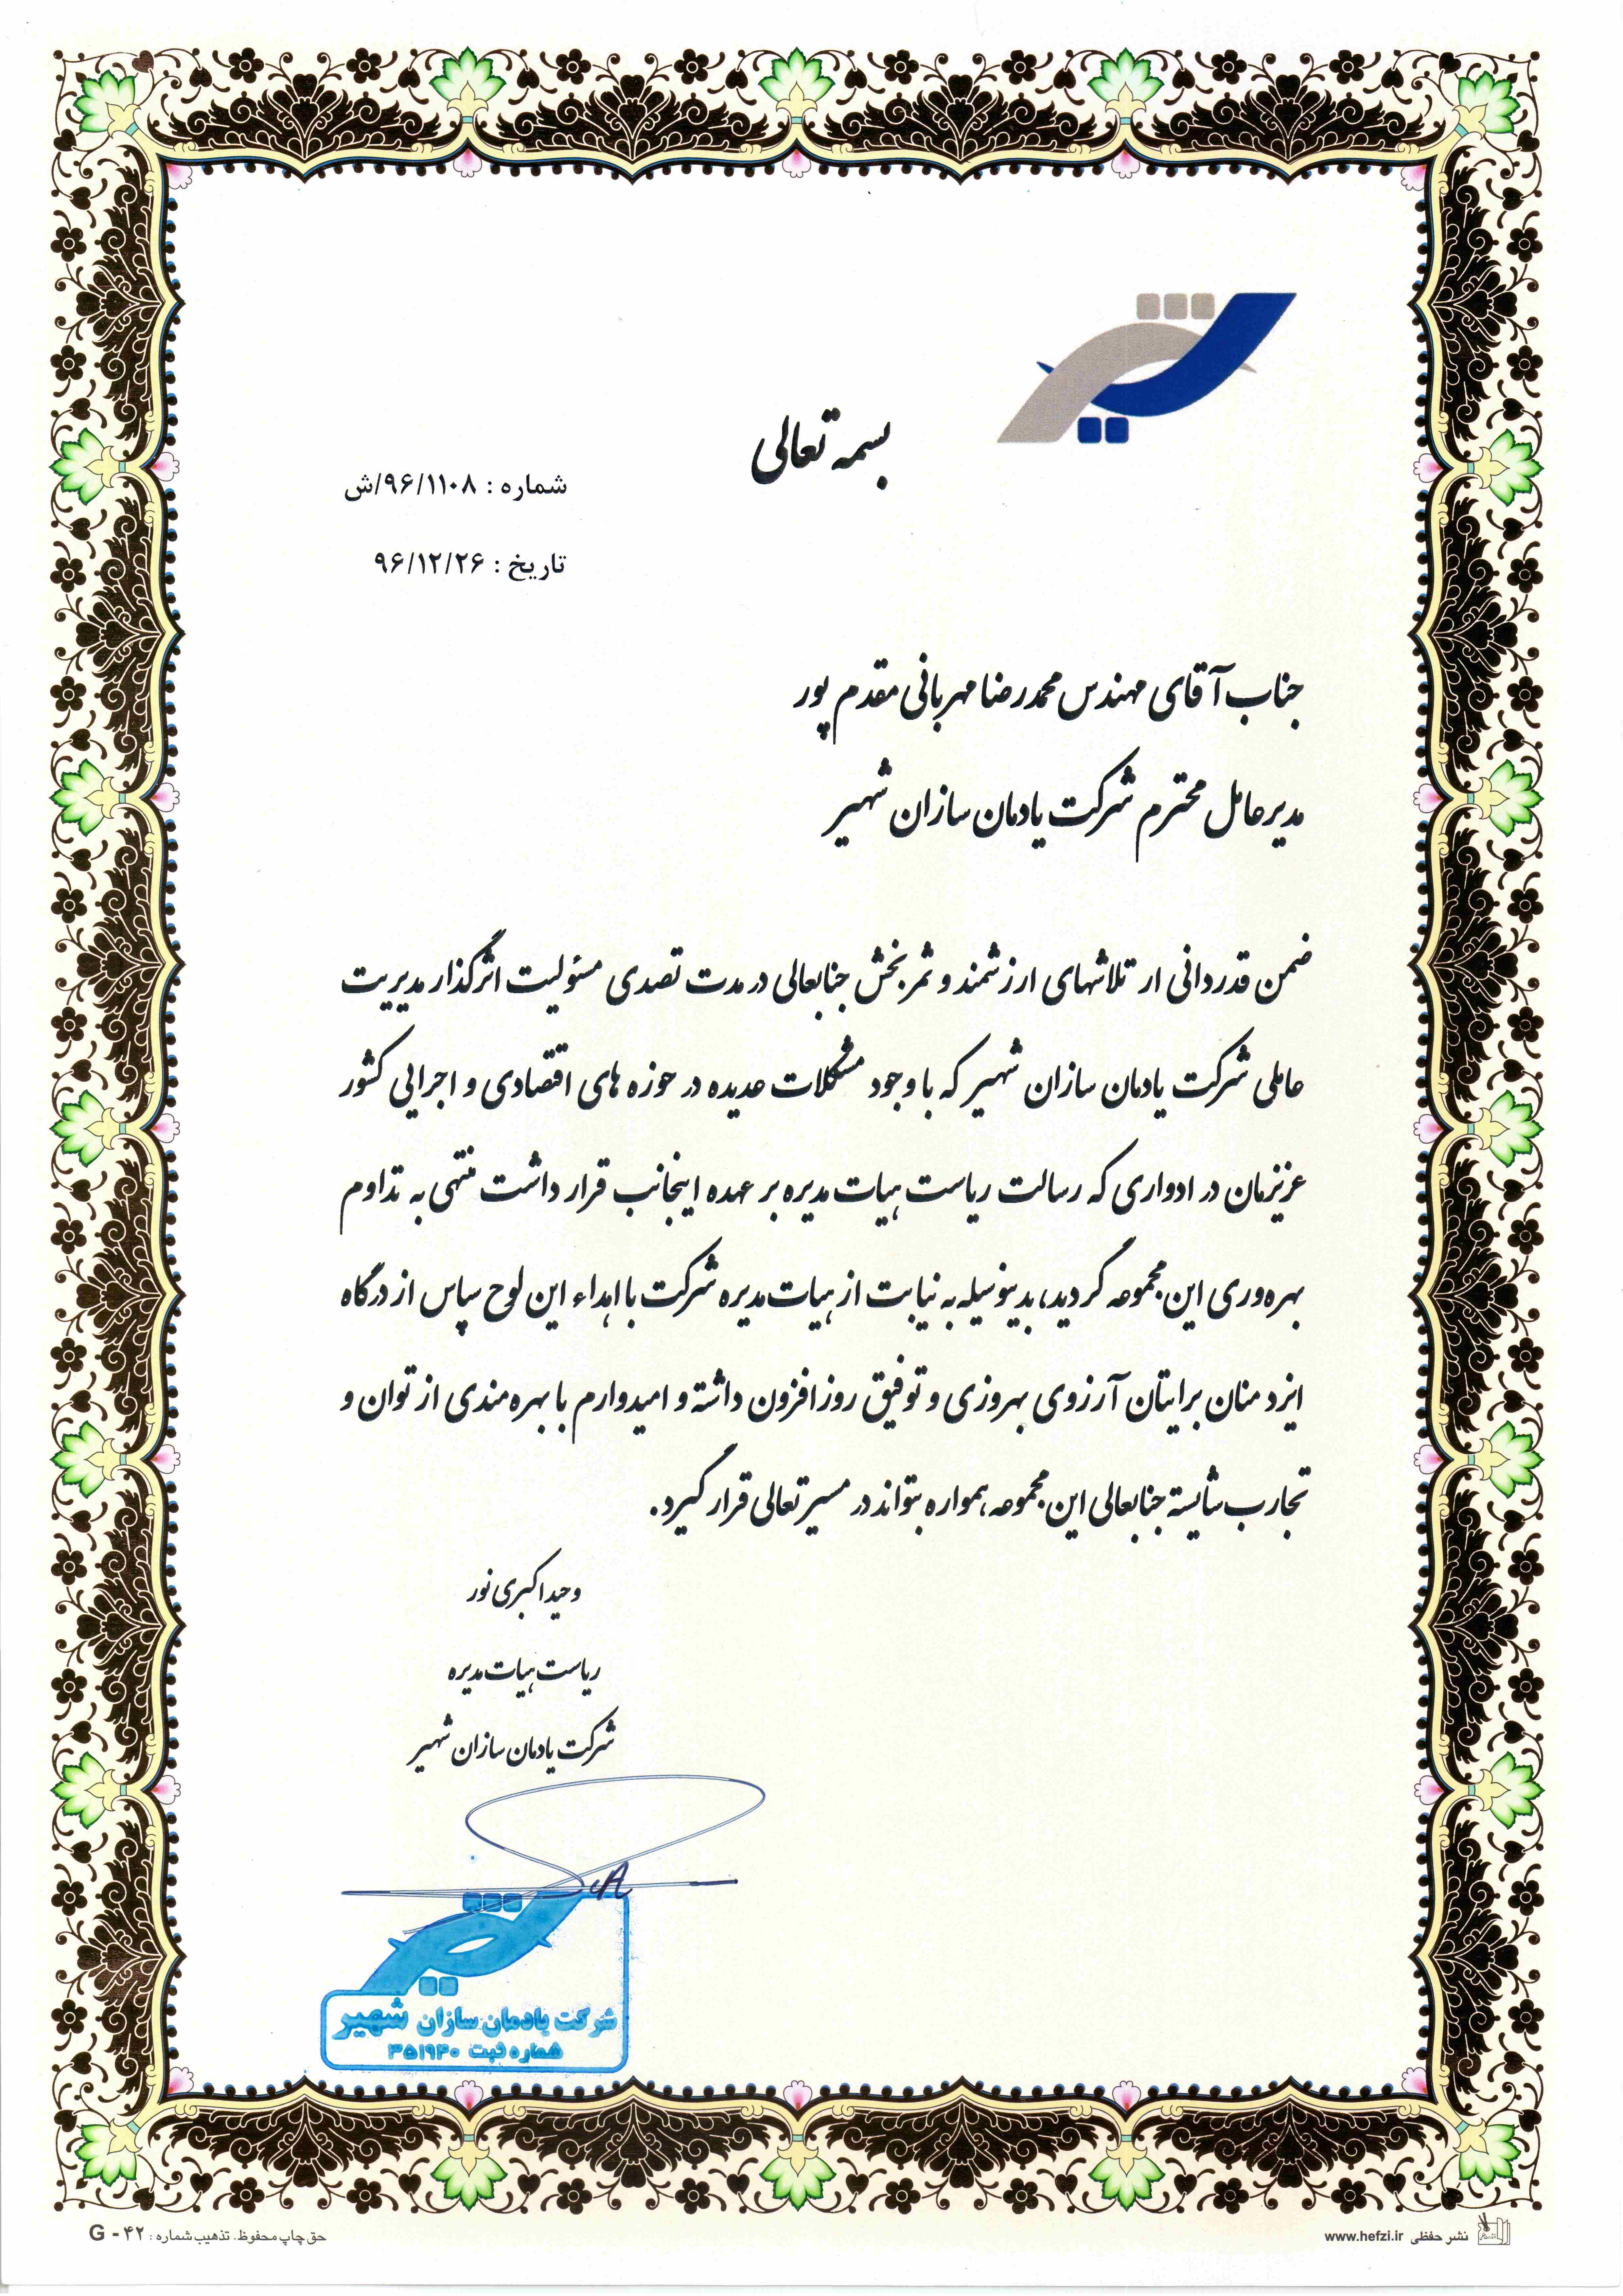 بسمه تعالی
شماره : ۹۶/۱۱۰۸/ش
تاریخ : ۹۶/۱۲/۲۶
جناب آقای مهندس محمدرضا مهربانی مقدم پور
مدیرعامل محترم شرکت یادمان سازان شهیر
ضمن قدردانی ار تلاشهای ارزشمند و ثمربخش جنابعالی در مدت تصدی مسئولیت اثرگذار مدیریت
عاملی شرکت یادمان سازان شهیر که با وجود مشکلات عدیده در حوزه های اقتصادی و اجرایی کشور
عزیزمان در ادواری که رسالت ریاست هیات مدیره بر عهده اینجانب قرار داشت منتهی به تداوم
بهره‌وری این مجموعه گردید، بدینوسیله به نیابت از هیات مدیره شرکت با اهداء این لوح سپاس از درگاه
ایزد منان برایتان آرزوی بهروزی و توفیق روزافزون داشته و امیدوارم با بهره مندی از توان و
تجارب شایسته جنابعالی این مجموعه، همواره بتواند در مسیر تعالی قرار گیرد.
وحید اکبری نور
ریاست هیات مدیره
شرکت یادمان سازان شهیر
شرکت یادمان سازان شهیر
شماره ثبت ۳۵۱۹۴۰
حق چاپ محفوظ. تذهیب شماره : G - ۴۲
نشر حفظی www.hefzi.ir